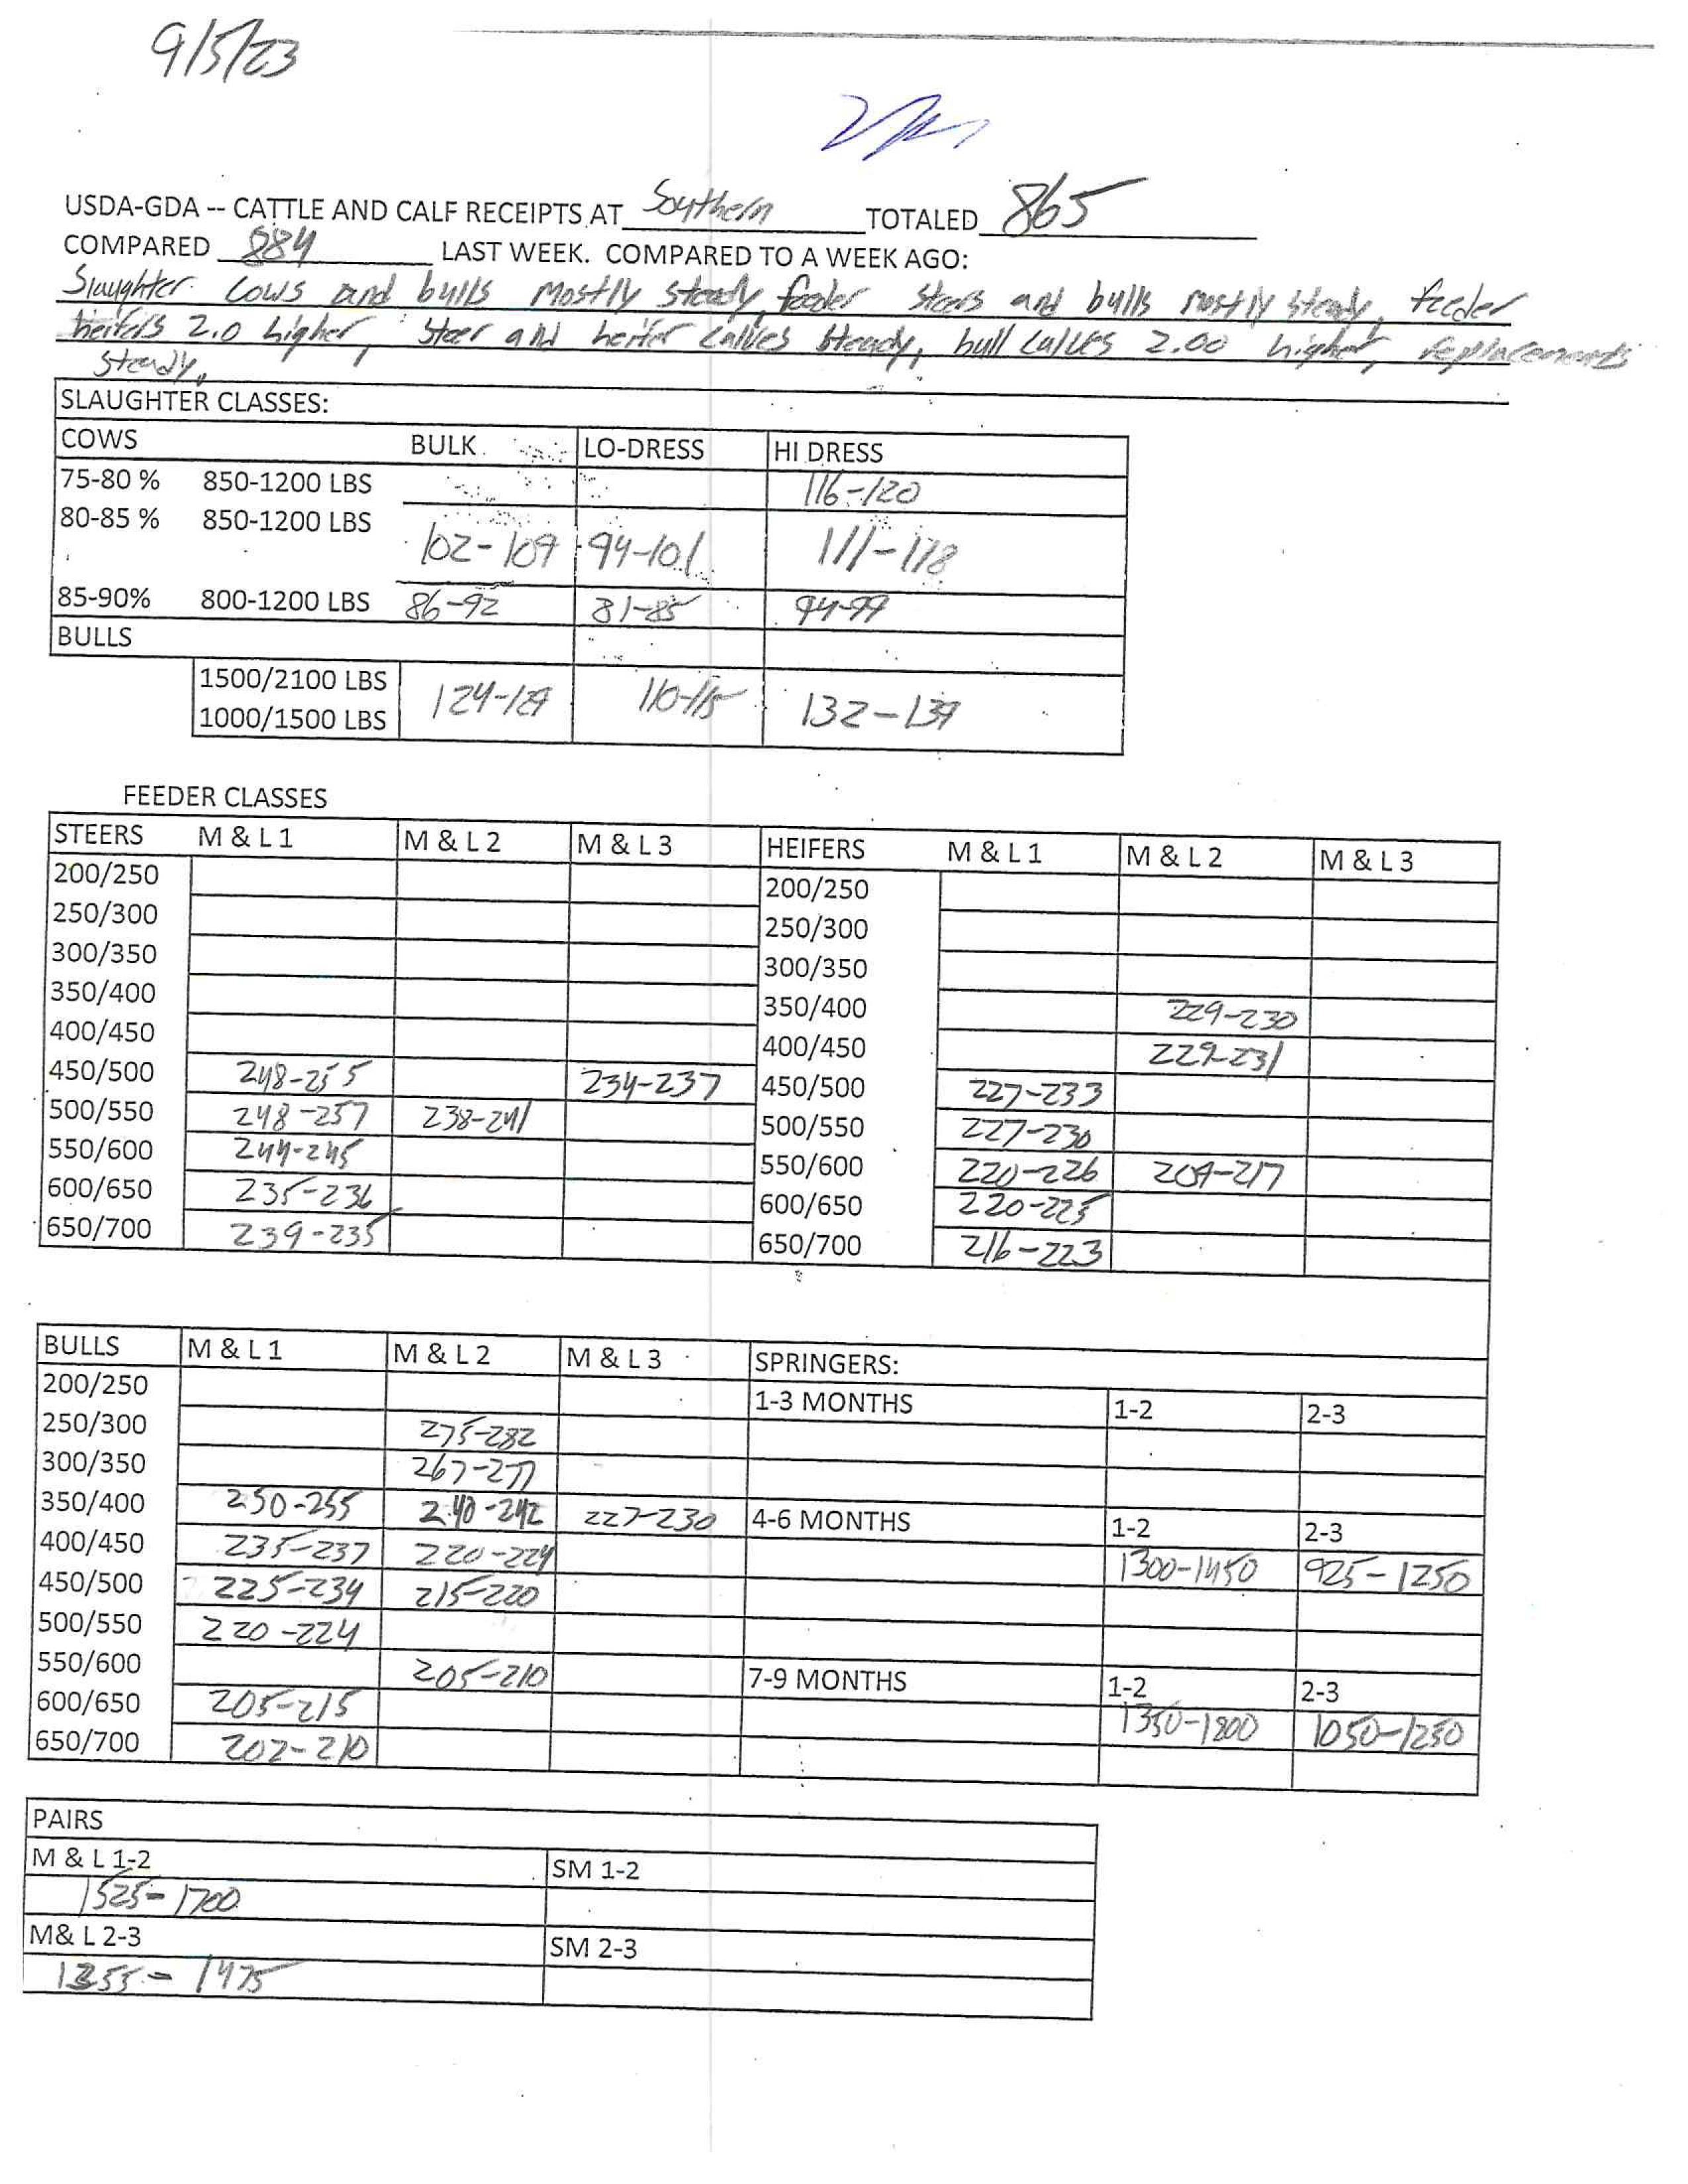 9/5/23
USDA-GDA -- CATTLE AND CALF RECEIPTS AT Southern TOTALED 865
COMPARED 884 LAST WEEK. COMPARED TO A WEEK AGO:
Slaughter cows and bulls mostly steady, feeder steers and bulls mostly steady, feeder
heifers 2.0 higher, steer and heifer calves steady, bull calves 2.00 higher, replacements
steady.
SLAUGHTER CLASSES:
COWS BULK LO-DRESS HI DRESS
75-80 % 850-1200 LBS 116-120
80-85 % 850-1200 LBS 102-109 94-101 111-118
85-90% 800-1200 LBS 86-92 81-85 94-99
BULLS
1500/2100 LBS 124-129 110-115 132-139
1000/1500 LBS
FEEDER CLASSES
STEERS M & L 1 M & L 2 M & L 3 HEIFERS M & L 1 M & L 2 M & L 3
200/250 200/250
250/300 250/300
300/350 300/350
350/400 350/400 229-230
400/450 400/450 229-231
450/500 248-255 234-237 450/500 227-233
500/550 248-257 238-241 500/550 227-230
550/600 244-245 550/600 220-226 209-217
600/650 235-236 600/650 220-225
650/700 239-235 650/700 216-223
BULLS M & L 1 M & L 2 M & L 3 SPRINGERS:
200/250 1-3 MONTHS 1-2 2-3
250/300 275-282
300/350 267-277
350/400 250-255 240-242 227-230 4-6 MONTHS 1-2 2-3
400/450 235-237 220-224 1300-1450 925-1250
450/500 225-234 215-220
500/550 220-224
550/600 205-210 7-9 MONTHS 1-2 2-3
600/650 205-215 1350-1800 1050-1250
650/700 202-210
PAIRS
M & L 1-2 SM 1-2
1525-1700
M& L 2-3 SM 2-3
1355-1475